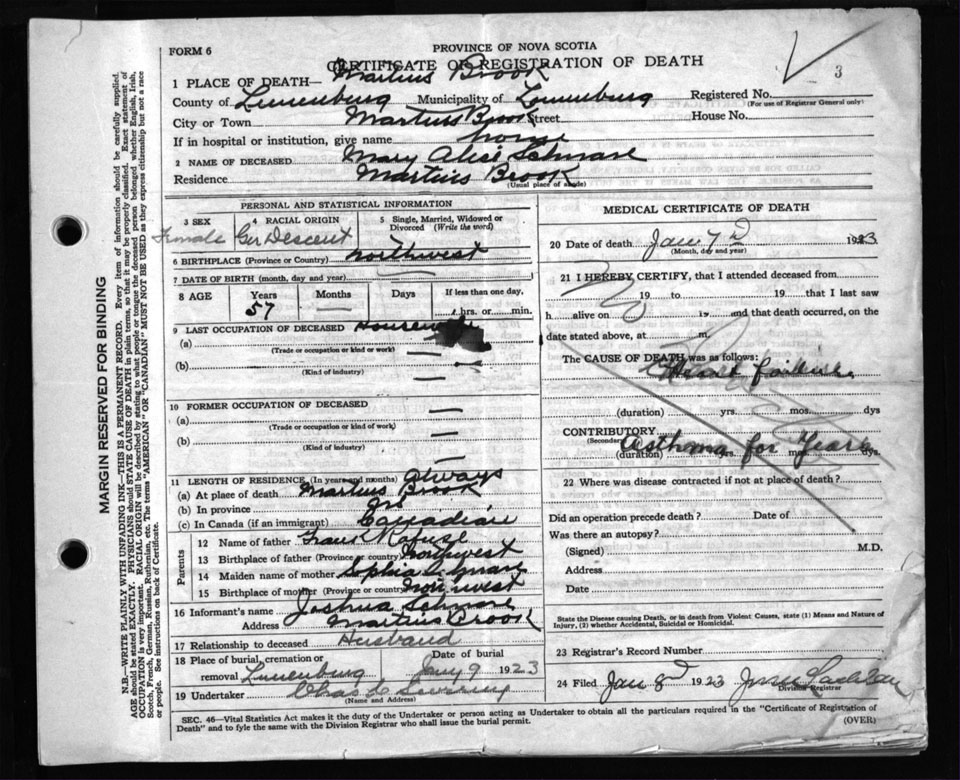 FORM 6
PROVINCE OF NOVA SCOTIA
CERTIFICATE OF REGISTRATION OF DEATH
3
1 PLACE OF DEATH— Martins Brook
County of Lunenburg Municipality of Lunenburg Registered No.
(For use of Registrar General only)
City or Town Martins Brook Street House No.
If in hospital or institution, give name home
2 NAME OF DECEASED Mary Alice Schnare
Residence Martins Brook
(Usual place of abode)
PERSONAL AND STATISTICAL INFORMATION
3 SEX 4 RACIAL ORIGIN 5 Single, Married, Widowed or Divorced (Write the word)
Female Ger Descent
6 BIRTHPLACE (Province or Country) Northwest
7 DATE OF BIRTH (month, day and year)
8 AGE Years Months Days If less than one day,
57 hrs. or min.
9 LAST OCCUPATION OF DECEASED
(a)
(Trade or occupation or kind or work)
(b)
(Kind of industry)
10 FORMER OCCUPATION OF DECEASED
(a)
(Trade or occupation or kind of work)
(b)
(Kind of industry)
11 LENGTH OF RESIDENCE (In years and months) Always
(a) At place of death Martins Brook
(b) In province
(c) In Canada (if an immigrant) Canadian
Parents
12 Name of father
13 Birthplace of father (Province or country) Northwest
14 Maiden name of mother Sophia
15 Birthplace of mother (Province or country) Northwest
16 Informant's name Joshua Schnare
Address Martins Brook
17 Relationship to deceased Husband
18 Place of burial, cremation or Date of burial
removal Lunenburg Jany 9 1923
19 Undertaker Chas
(Name and Address)
MEDICAL CERTIFICATE OF DEATH
20 Date of death Jan 7 1923
(Month, day and year)
21 I HEREBY CERTIFY, that I attended deceased from
19 to 19 that I last saw
h alive on 19 and that death occurred, on the
date stated above, at m.
The CAUSE OF DEATH was as follows:
Heart failure
(duration) yrs. mos. dys
CONTRIBUTORY
(Secondary) Asthma for Years
(duration) yrs. mos. dys.
22 Where was disease contracted if not at place of death?
Did an operation precede death? Date of
Was there an autopsy?
(Signed) M.D.
Address
Date
State the Disease causing Death, or in death from Violent Causes, state (1) Means and Nature of Injury, (2) whether Accidental, Suicidal or Homicidal.
23 Registrar's Record Number
24 Filed Jan 8 1923
Division Registrar
SEC. 46—Vital Statistics Act makes it the duty of the Undertaker or person acting as Undertaker to obtain all the particulars required in the "Certificate of Registration of
Death" and to fyle the same with the Division Registrar who shall issue the burial permit. (OVER)
MARGIN RESERVED FOR BINDING
N.B.—WRITE PLAINLY WITH UNFADING INK—THIS IS A PERMANENT RECORD. Every item of information should be carefully supplied.
AGE should be stated EXACTLY. PHYSICIANS should STATE CAUSE OF DEATH in plain terms, so that it may be properly classified. Exact statement of
OCCUPATION is very important. RACIAL ORIGIN will be described by stating to what people or tongue the deceased person belonged whether English, Irish,
Scotch, French, German, Russian, Ruthenian, etc. The terms "AMERICAN" OR "CANADIAN" MUST NOT BE USED as they express citizenship but not a race
or people. See instructions on back of Certificate.